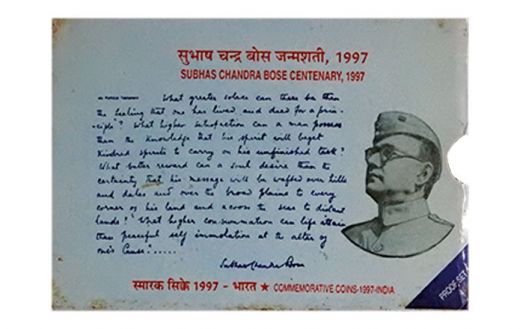 सुभाष चन्द्र बोस जन्मशती, 1997
SUBHAS CHANDRA BOSE CENTENARY, 1997
My Political Testament What greater solace can there be than
the feeling that one has lived and died for a prin-
ciple? What higher satisfaction can a man possess
than the knowledge that his spirit will beget
kindred spirits to carry on his unfinished task?
What better reward can a soul desire than the
certainty that his message will be wafted over hills
and dales and over the broad plains to every
corner of his land and across the seas to distant
lands? What higher consummation can life attain
than peaceful self immolation at the altar of
one's Cause?......
Subhas Chandra Bose
स्मारक सिक्के 1997 - भारत ★ COMMEMORATIVE COINS-1997-INDIA
PROOF SET